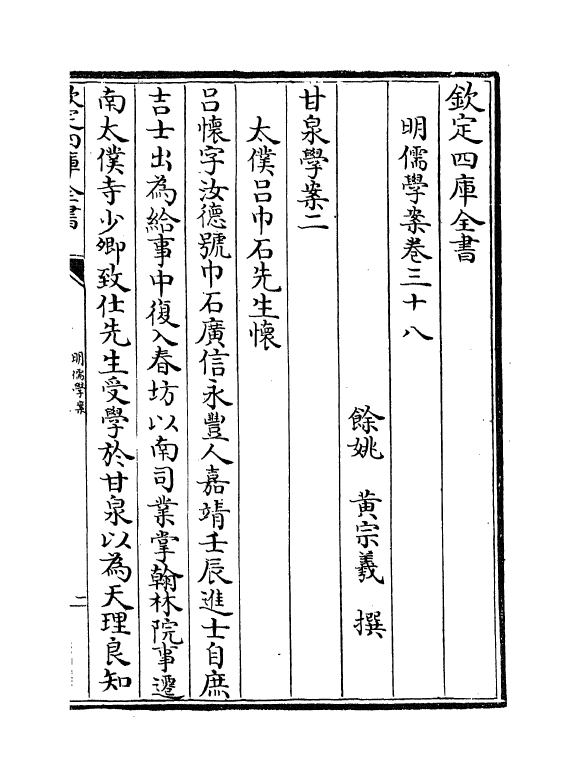 欽定四庫全書
明儒學案卷三十八
餘姚 黃宗羲 撰
甘泉學案二
太僕呂巾石先生懷
呂懷字汝德號巾石廣信永豐人嘉靖壬辰進士自庶
吉士出為給事中復入春坊以南司業掌翰林院事遷
南太僕寺少卿致仕先生受學於甘泉以為天理良知
欽定四庫全書
明儒學案